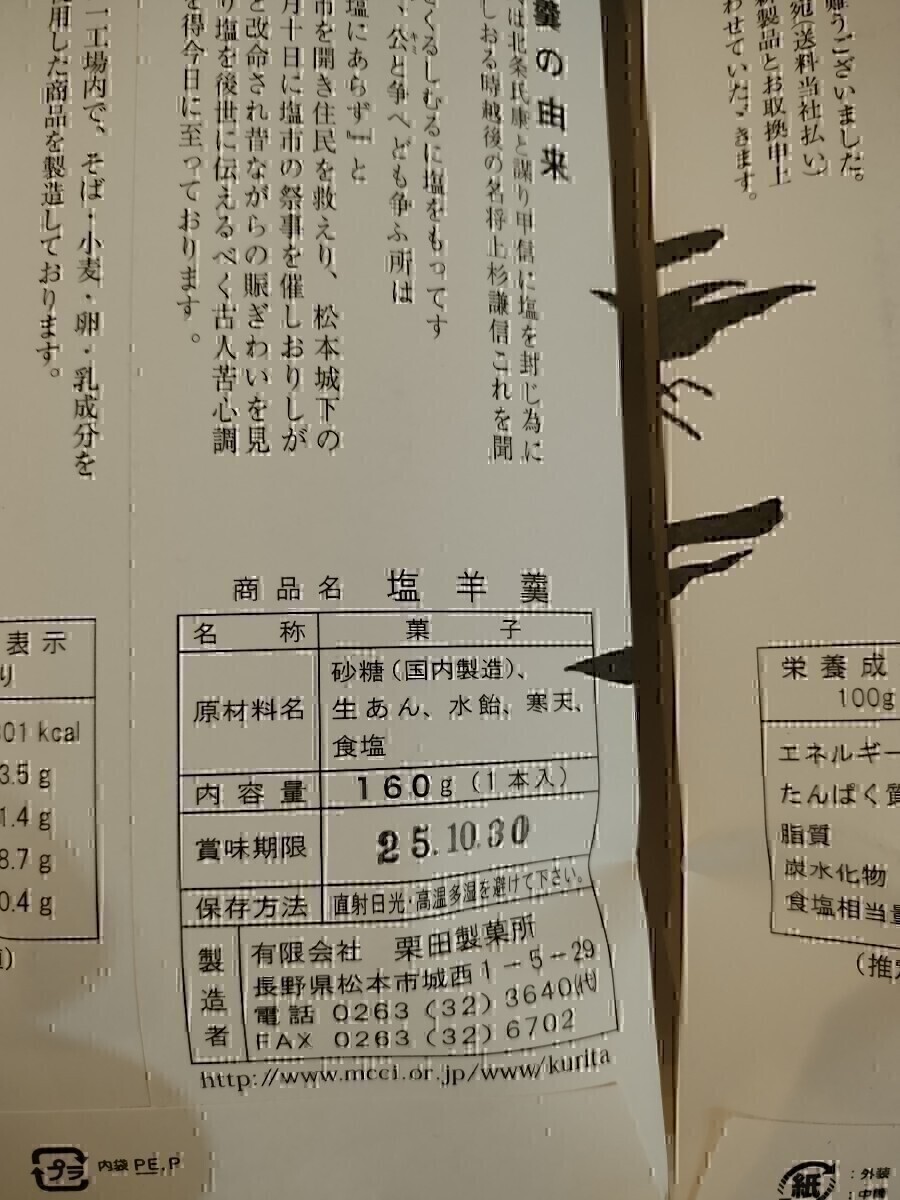 難うございました。
宛(送料当社払い)
新製品とお取換申上
わせていたゞきます。
羹の由来
は北条氏康と謀り甲信に塩を封じ為に
しおる時越後の名将上杉謙信これを聞
くるしむるに塩をもってす
、公と争へども争ふ所は
塩にあらず』と
市を開き住民を救えり、松本城下の
月十日に塩市の祭事を催しおりしが
と改命され昔ながらの賑ぎわいを見
り塩を後世に伝えるべく古人苦心調
を得今日に至っております。
一工場内で、そば・小麦・卵・乳成分を
使用した商品を製造しております。
商品名 塩羊羹
名称 菓子
原材料名 砂糖(国内製造)、
生あん、水飴、寒天、
食塩
内容量 160g(1本入)
賞味期限 25.10.30
保存方法 直射日光・高温多湿を避けて下さい。
製造者 有限会社 栗田製菓所
長野県松本市城西1-5-29
電話 0263(32)3640(代)
FAX 0263(32)6702
http://www.mcci.or.jp/www/kurita
表示
り
01 kcal
3.5 g
1.4 g
8.7 g
0.4 g
栄養成
100g
エネルギー
たんぱく質
脂質
炭水化物
食塩相当量
(推定
プラ 内袋 PE,P
紙 :外装
:中